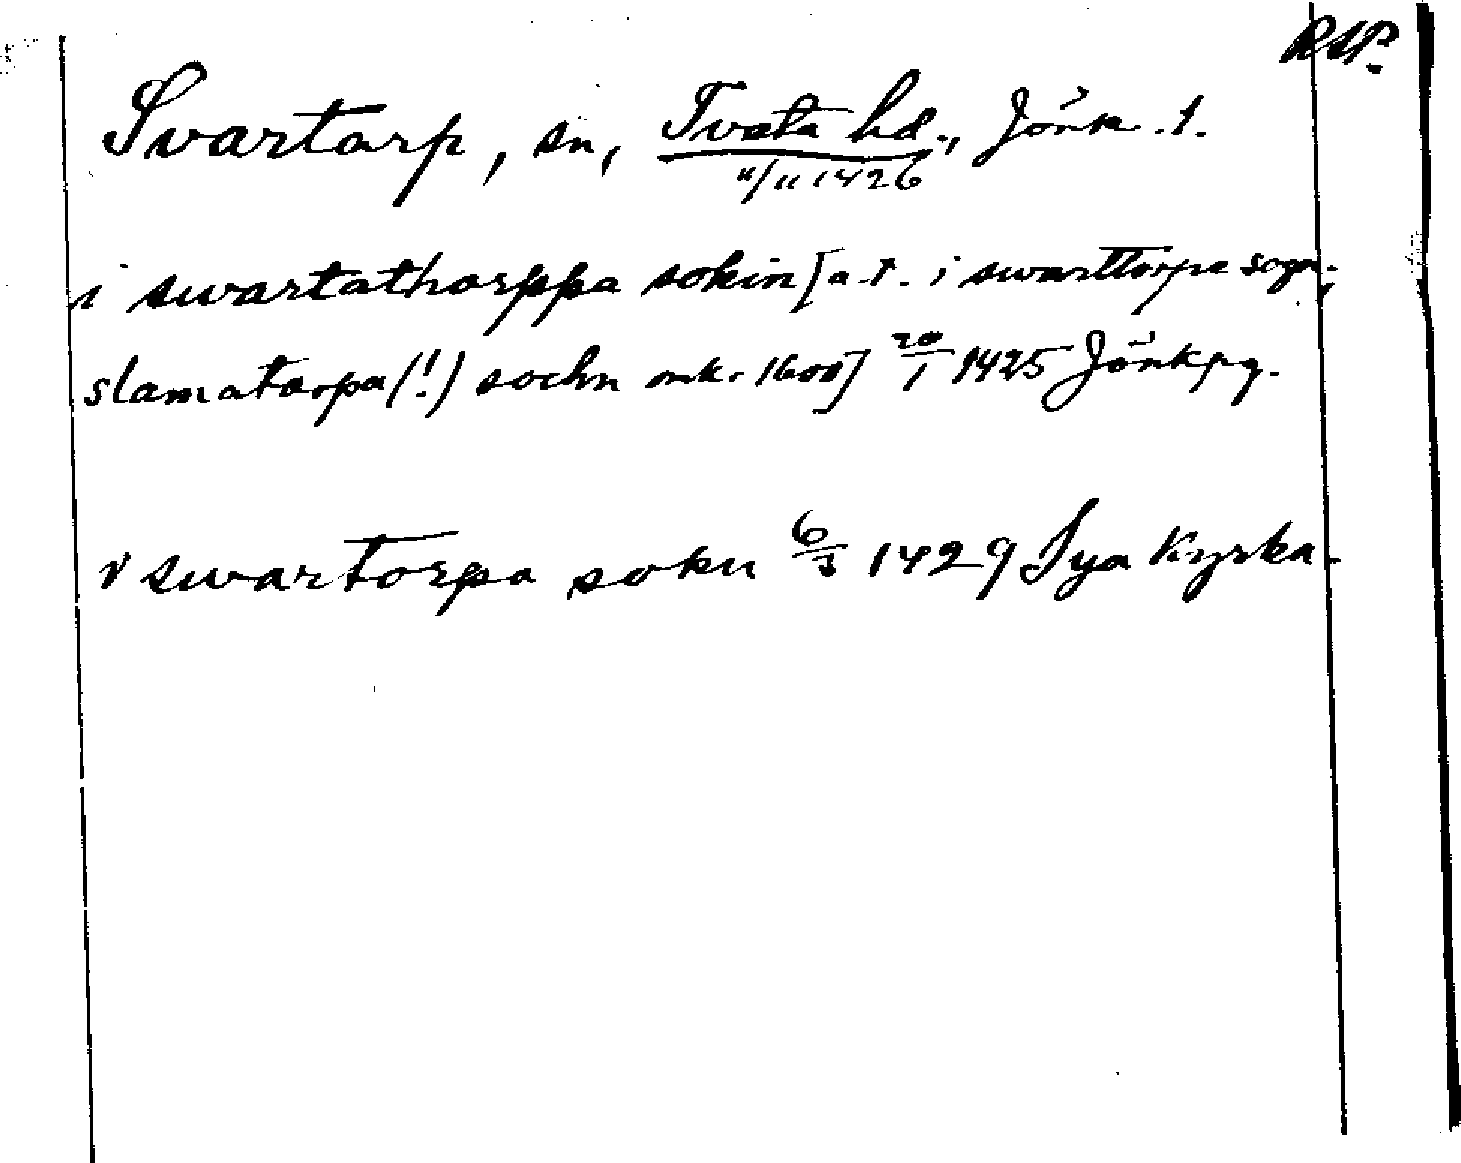 RAP.
Svartarp, sn, Tveta hd., Jönk. l.
11/11 1426
i swartathorppa sokin [a.t. i swarttorpe sogn;
slamatorpa(!) sochn omk. 1600] 20/1 1425 Jönkpg.
i swartorpa sokn 6/3 1429 Sya Kyrka.